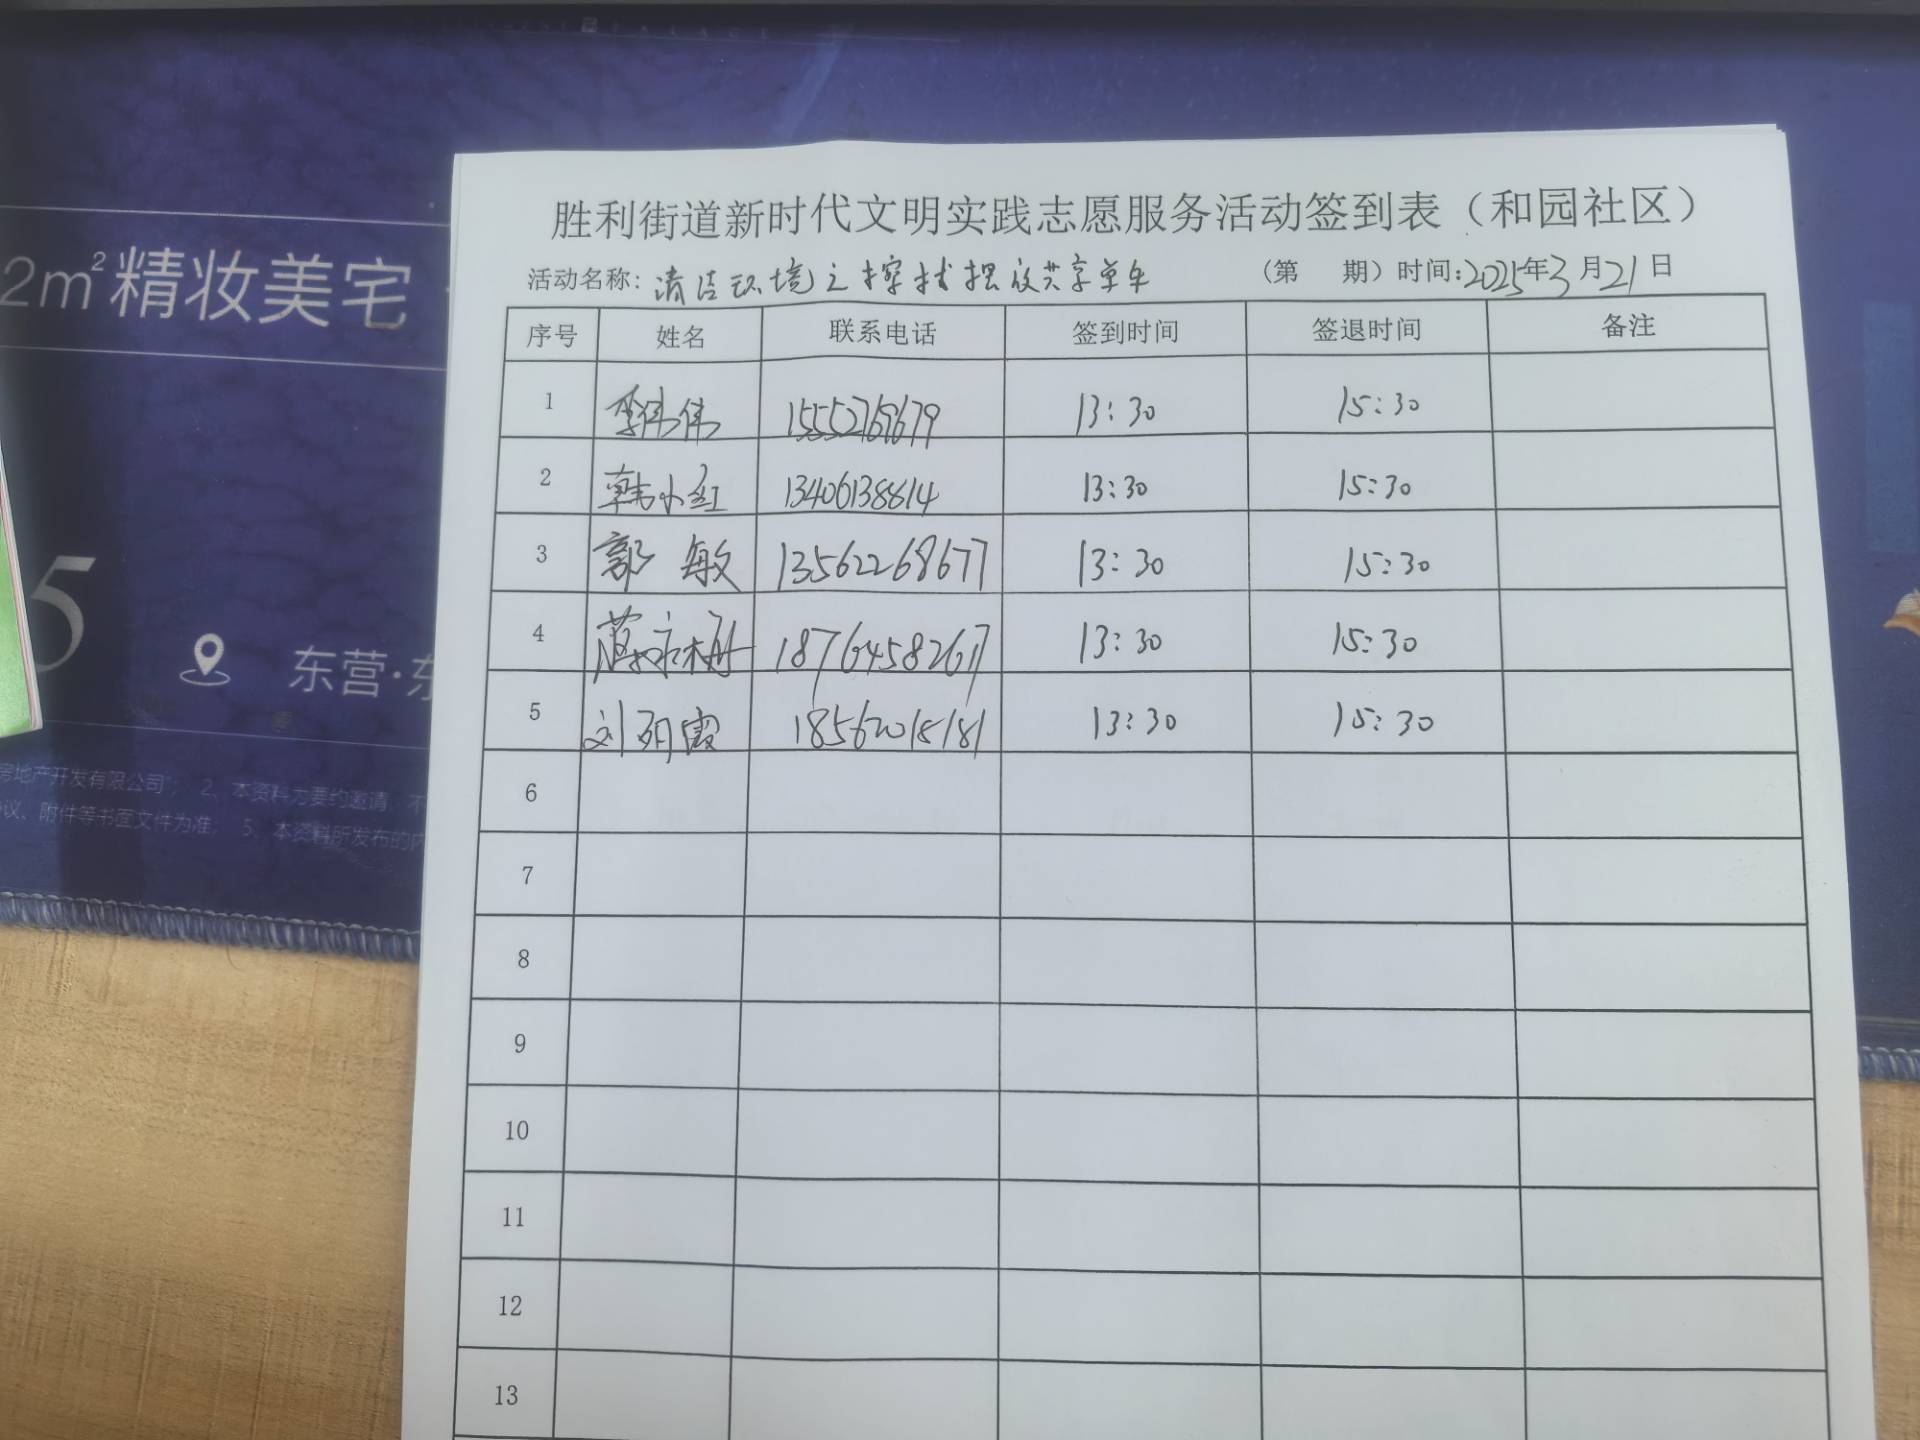 2m²精妆美宅
5
东营·东
房地产开发有限公司”； 2、本资料为要约邀请，不
协议、附件等书面文件为准； 5、本资料所发布的内
胜利街道新时代文明实践志愿服务活动签到表（和园社区）
活动名称：清洁环境之擦拭摆放共享单车 （第 期）时间：2025年3月21日
序号 姓名 联系电话 签到时间 签退时间 备注
1 李伟伟 15552769679 13:30 15:30
2 韩小红 13406138614 13:30 15:30
3 郭敏 13562268677 13:30 15:30
4 18764582617 13:30 15:30
5 刘丽霞 18562018181 13:30 15:30
6
7
8
9
10
11
12
13